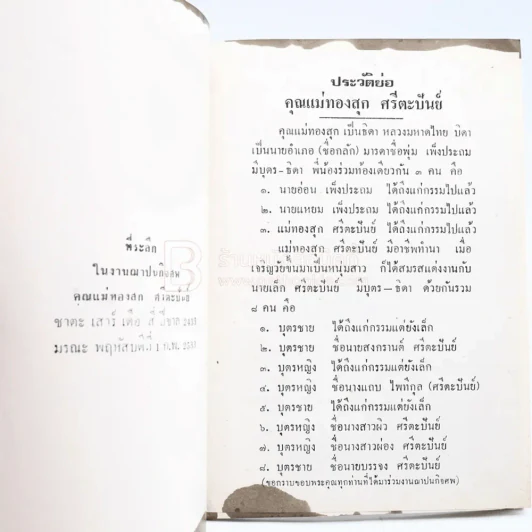 ที่ระลึก
ในงานฌาปนกิจศพ
คุณแม่ทองสุก ศรีตะปันย์
ชาตะ เสาร์ เดือน
มรณะ พฤหัสบดีที่
ประวัติย่อ
คุณแม่ทองสุก ศรีตะปันย์
คุณแม่ทองสุก เป็นธิดา หลวงมหาดไทย บิดา
เป็นนายอำเภอ (ชื่อกลัก) มารดาชื่อพุ่ม เพ็งประถม
มีบุตร-ธิดา พี่น้องร่วมท้องเดียวกัน ๓ คน คือ
๑. นายอ่อน เพ็งประถม ได้ถึงแก่กรรมไปแล้ว
๒. นายแหยม เพ็งประถม ได้ถึงแก่กรรมไปแล้ว
๓. แม่ทองสุก ศรีตะปันย์ ได้ถึงแก่กรรมไปแล้ว
แม่ทองสุก ศรีตะปันย์ มีอาชีพทำนา เมื่อ
เจริญวัยขึ้นมาเป็นหนุ่มสาว ก็ได้สมรสแต่งงานกับ
นายเล็ก ศรีตะปันย์ มีบุตร-ธิดา ด้วยกันรวม
๘ คน คือ
๑. บุตรชาย ได้ถึงแก่กรรมแต่ยังเล็ก
๒. บุตรชาย ชื่อนายสงกรานต์ ศรีตะปันย์
๓. บุตรหญิง ได้ถึงแก่กรรมแต่ยังเล็ก
๔. บุตรหญิง ชื่อนางแถบ ไพทีกุล (ศรีตะปันย์)
๕. บุตรชาย ได้ถึงแก่กรรมแต่ยังเล็ก
๖. บุตรหญิง ชื่อนางสาวผิว ศรีตะปันย์
๗. บุตรหญิง ชื่อนางสาวผ่อง ศรีตะปันย์
๘. บุตรชาย ชื่อนายบรรจง ศรีตะปันย์
(ขอกราบขอบพระคุณทุกท่านที่ได้มาร่วมงานฌาปนกิจศพ)